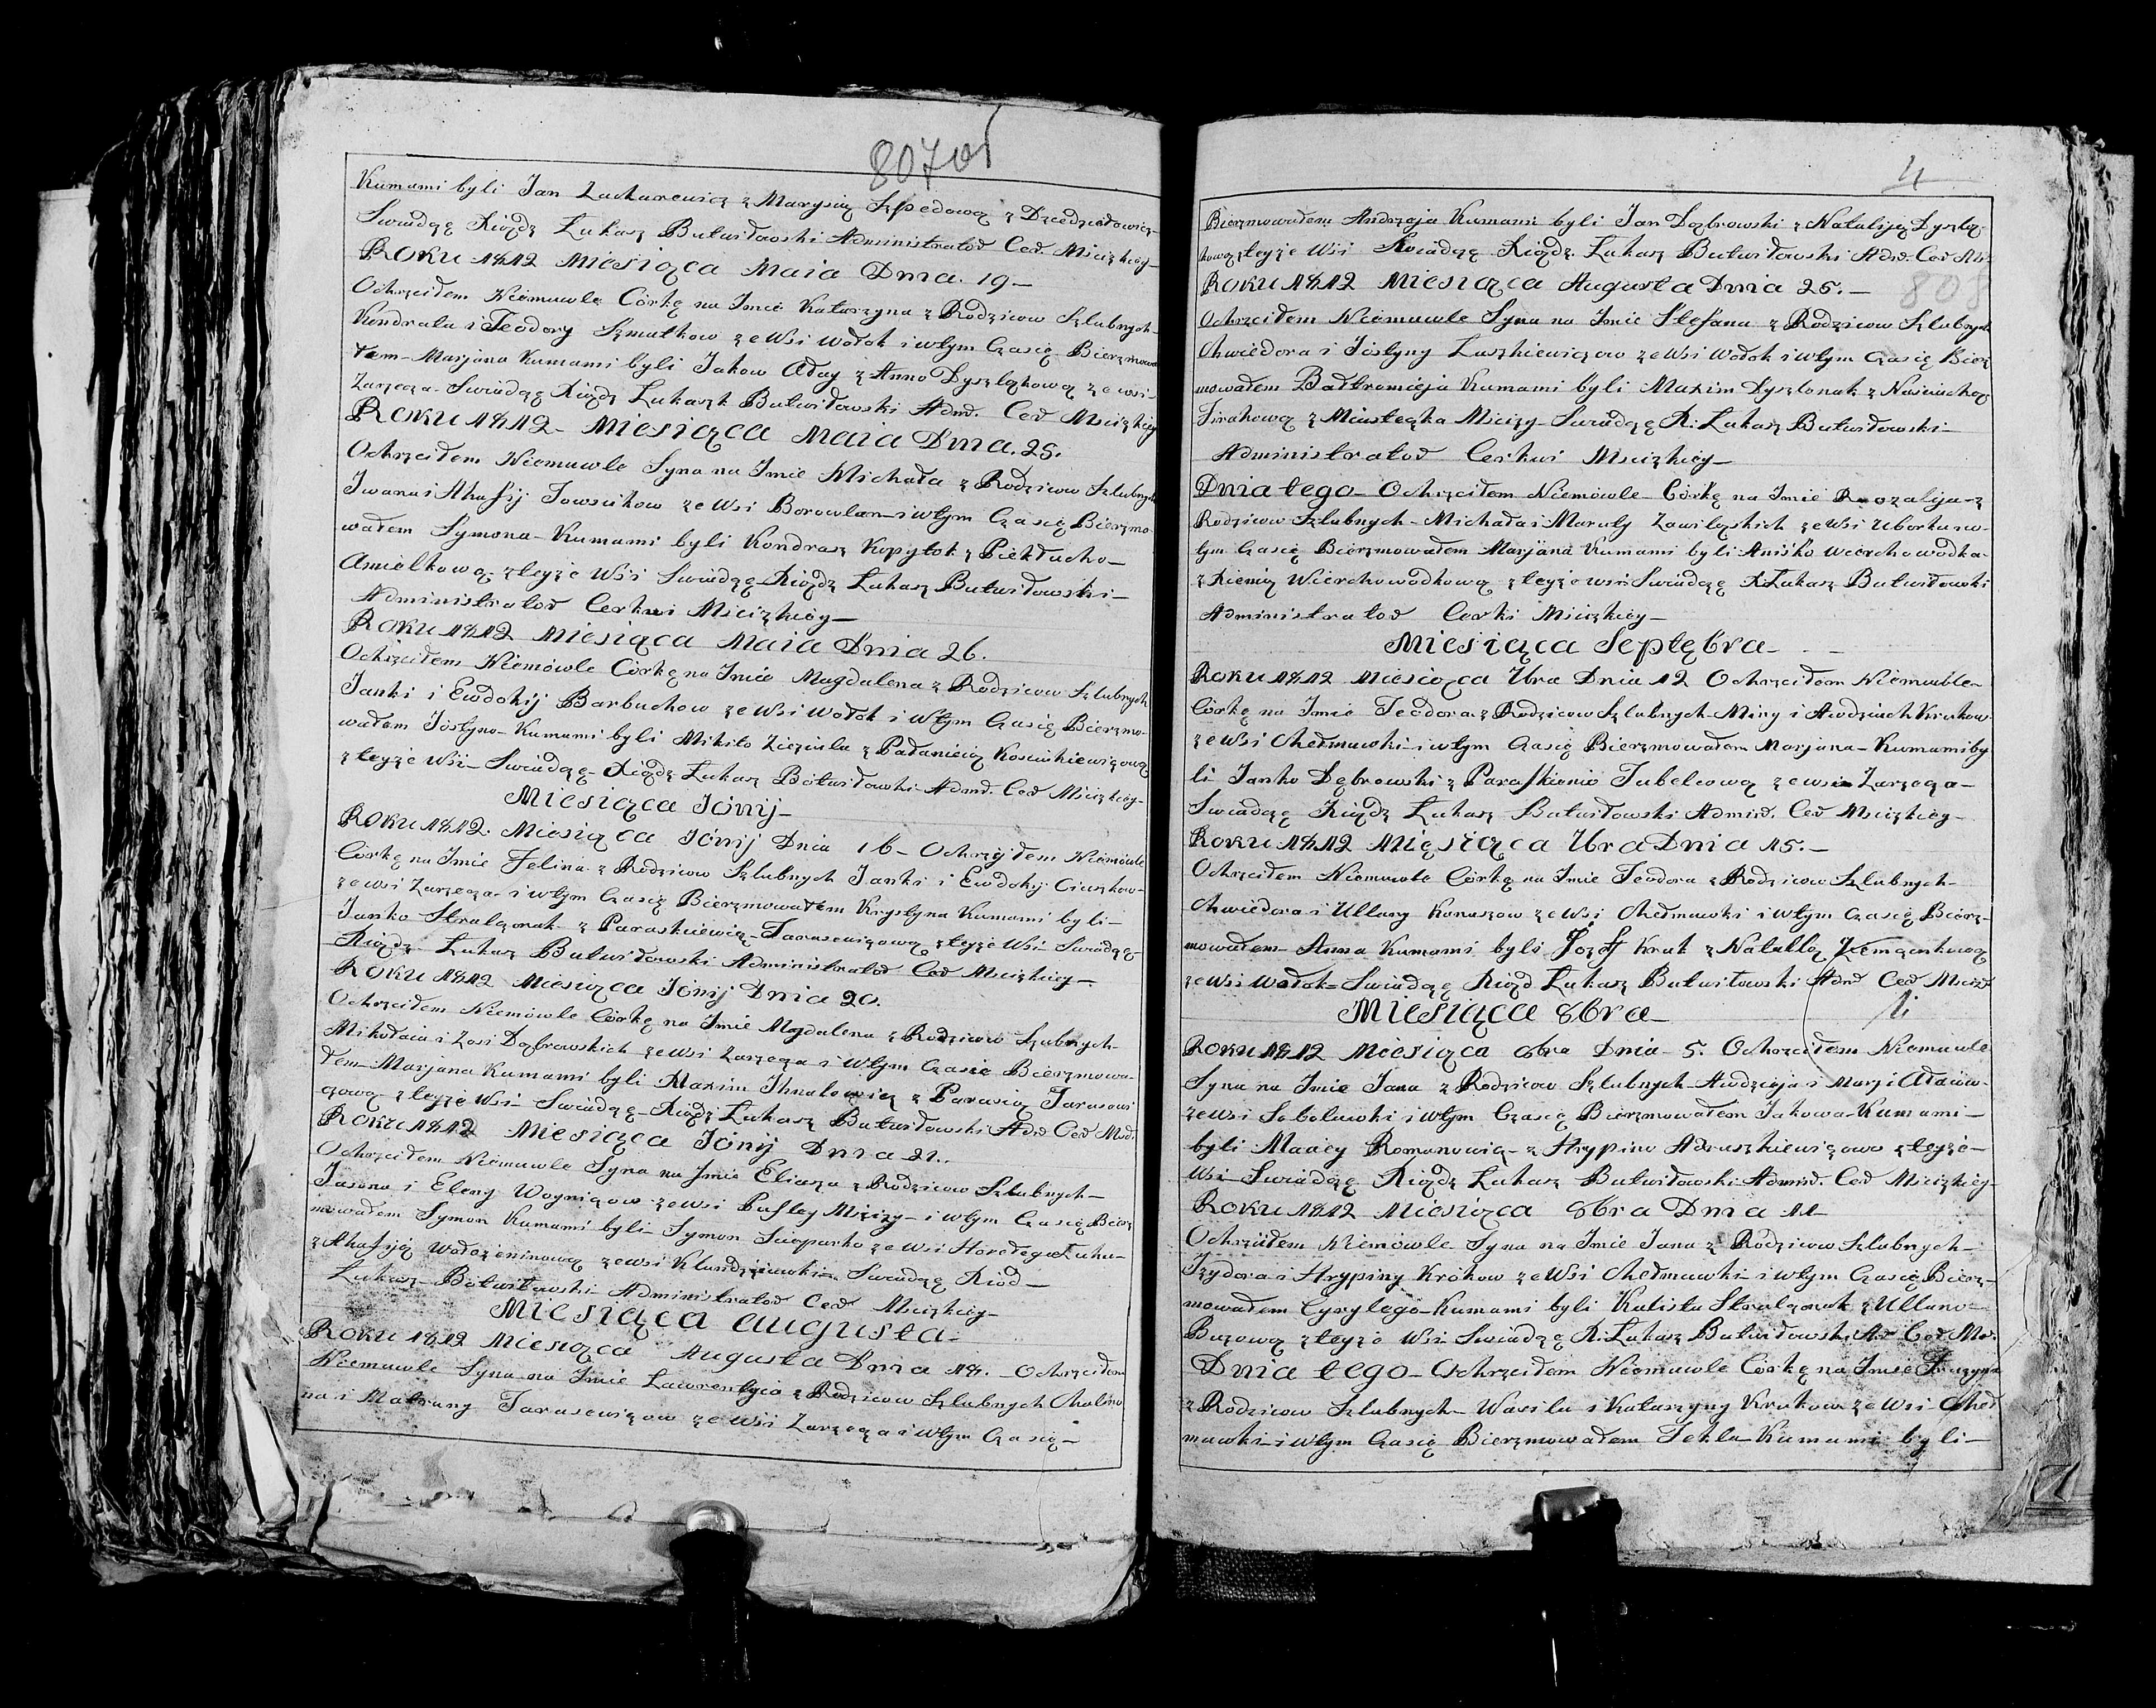 807об
Kumami byli Jan Zacharewicz z Marysią Szpedową z Dzedziełowicz
Swiadczę Xiądz Łukasz Butwiłowski Administrator Cer. Mscizkiey
Roku 1812 Miesiąca Maia Dnia. 19 -
Ochrzciłem Niemuwle Córkę na Imie Katarzyna z Rodziców Szlubnych
Kondrata i Teodory Szmatkow ze Wsi Wołok i w tym Czasię Bierzmowa
łem - Marjana Kumami byli Jakow Aday z Anno Dyszląkową ze wsi
Zarzecza - Swiadczę Xiądz Łukasz Butwiłowski Admr. Cer Mscizkiey
Roku 1812 - Miesiąca Maia Dnia. 25.
Ochrzciłem Niemuwle Syna na Imie Michała z Rodzicow Szlubnych
Iwana i Ahafij Jowsiukow ze Wsi Borowlan - i w tym Czasię Bierzmo-
wałem Symona - Kumami byli Kondrasz Kopytok z Piekłucho
Amielkową z teyże Wsi Swiadczę - Xiądz Łukasz Butwiłowski -
Administrator Cerkwi Mscizkiey -
Roku 1812 Miesiąca Maia Dnia 26.
Ochrzciłem Niemówle Córkę na Imie Magdalena z Rodzicow Szlubnych
Janki i Ewdokij Barbuchow ze Wsi Wołok i w tym Czasię Bierzmo-
wałem Jóstyno - Kumami byli Mikito Zieziula z Pałanieią Kosciukiewiczową
z teyże Wsi - Swiadczę - Xiądz Łukasz Bótwiłowski - Admr. Cer Mscizkiey -
Miesiąca Jónij -
Roku 1812. Miesiąca Jónij Dnia 16 - Ochrzciłem Niemówle
Córkę na Imie Felina z Rodzicow Szlubnych Janki i Ewdokij Ciuszkow -
ze wsi Zarzecza - i w tym Czasię Bierzmowałem Krystyna Kumami byli -
Janko Stralczonak z Paraskiewią - Tarasewiczową z teyże Wsi - Swiadczę -
Xiądz Łukasz Butwiłowski Administrator Cer Mscizkiey -
Roku 1812 Miesiąca Jónij Dnia 20.
Ochrzciłem Niemówle Córkę na Imie Magdalena z Rodzicow Szlubnych -
Mikołaia i Zosi Dąbrowskich ze wsi Zarzecza i w tym Czasię Bierzmowa-
łem Marjana Kumami byli Maxim Ihnatowicz z Parasią Tarasewi
czową z teyże Wsi - Swiadczę - Xiądz Łukasz Butwiłowski Adr. Cer Mści
Roku 1812 Miesiąca Jónij Dnia 21.
Ochrzciłem Niemuwle Syna na Imie Eliasza z Rodzicow Szlubnych -
Jasona i Eleny Woyniczow ze wsi Pusley Mscizy - i w tym Czasię Bierz
mowałem Symon Kumami byli - Symon ze wsi
z Ahafiją Wołożeninową ze wsi Swiadczę Xiądz -
Łukasz - Bótwiłowski - Administrator Cer Mscizkiey -
Miesiąca Augusta -
Roku 1812 Miesiąca Augusta Dnia 18. - Ochrzciłem
Niemuwle Syna na Imie Lawrentyia z Rodzicow Szlubnych Chalimo
na i Matruny Tarasewiczow ze Wsi Zarzecza i w tym Czasię -
4
Bierzmowałem Andrzeja Kumami byli Jan Dąbrowski z Nataliją Dyszlą
kową z teyże Wsi Swiadczę Xiądz Łukasz Butwiłowski Adr. Cer Ms.
Roku 1812 Miesiąca Augusta Dnia 25. -
808
Ochrzciłem Niemuwle Syna na Imie Stefana z Rodzicow Szlubnych
Chwiedora i Jóstyny Laszkiewiczow ze Wsi Wołok i w tym Czasię Bierz
mowałem Bałtromieja Kumami byli Maxim Dyszlonak z
z Miasteczka Mscizy - Swiadczę X: Łukasz Butwiłowski -
Administrator Cerkwi Mscizkiey -
Dnia tego - Ochrzciłem Niemówle - Córkę na Imie Rozalija - z
Rodzicow Szlubnych - Michała i Maruty Zawiląskich ze Wsi Uborku i w
tym Czasię Bierzmowałem Marjana Kumami byli Aniśko Wierchowodka -
z Xienią Wierchowodkową z teyże wsi Swiadczę X Łukasz Butwiłowski
Administrator Cerki Mscizkiey -
Miesiąca Septębra -
Roku 1812 Miesiąca 7bra Dnia 12 Ochrzciłem Niemuwle -
Córkę na Imie Teodora z Rodzicow Szlubnych - Miny i Awdziuch Krukow
ze Wsi Chełmawki - i w tym Czasię Bierzmowałem Marjana - Kumami by
li Janko Dębrowski z Paraskieniö Jubelcową ze wsi Zarzecza -
Swiadczę Xiądz Łukasz Butwiłowski Admr. Cer Mscizkiey -
Roku 1812 Mięsiąca 7bra Dnia 15. -
Ochrzciłem Niemuwle Córkę na Imie Teodora z Rodzicow Szlubnych -
Chwiedora i Ullany Konaszow ze Wsi Chełmawki i w tym Czasię Bierz-
mowałem - Anna Kumami byli Józeff Kruk z Natallą
ze Wsi Wołok - Swiadczę Xiądz Łukasz Butwiłowski Admr Cer Mscizk
Miesiąca 8bra -
Roku 1812 Miesiąca 8bra Dnia - 5. Ochrzciłem Niemuwle
Syna na Imie Jana z Rodzicow Szlubnych - Awdzieja i Marji Adaiow -
ze Wsi Sobolawki i w tym Czasię Bierzmowałem Jakowa - Kumami -
byli Maciey Romanowicz - z Hrypino Adruszkiewiczowo z teyże -
Wsi - Swiadczę Xiądz Łukasz Butwiłowski Admr. Cer Mscizkiey -
Roku 1812 Miesiąca 8bra Dnia 11 -
Ochrzciłem Niemówle Syna na Imie Jana z Rodzicow Szlubnych -
Izydora i Hrypiny Krókow ze Wsi Chełmawki - i w tym Czasię Bierz-
mowałem Cyrylego - Kumami byli Kalistu Stralczonak z Ullano -
Buzową z teyże Wsi Swiadczę X. Łukasz Butwiłowski Adr Cer Ms.
Dnia tego - Ochrzciłem Niemuwle Córkę na Imie Fruzyna
z Rodzicow Szlubnych - Wasila i Katarzyny Krukow ze Wsi - Cheł
mawki - i w tym Czasię Bierzmowałem Tekla - Kumami byli -